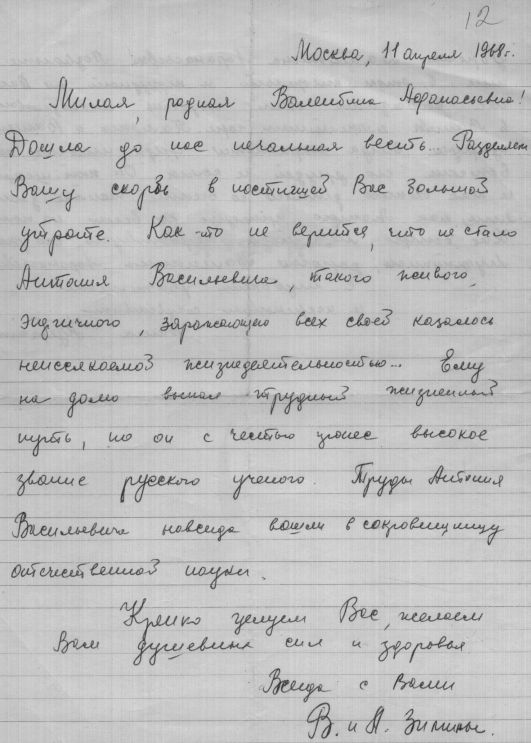 12
Москва, 11 апреля 1968г.
Милая, родная Валентина Афанасьевна!
Дошла до нас печальная весть... Разделяем
Вашу скорбь в постигшей Вас большой
утрате. Как-то не верится, что не стало
Антония Васильевича, такого живого,
энергичного, заражающего всех своей казалось
неиссякаемой жизнедеятельностью... Ему
на долю выпал трудный жизненный
путь, но он с честью пронес высокое
звание русского ученого. Труды Антония
Васильевича навсегда вошли в сокровищницу
отечественной науки.
Крепко целуем Вас, желаем
Вам душевных сил и здоровья
Всегда с Вами
В. и А. Зимины.